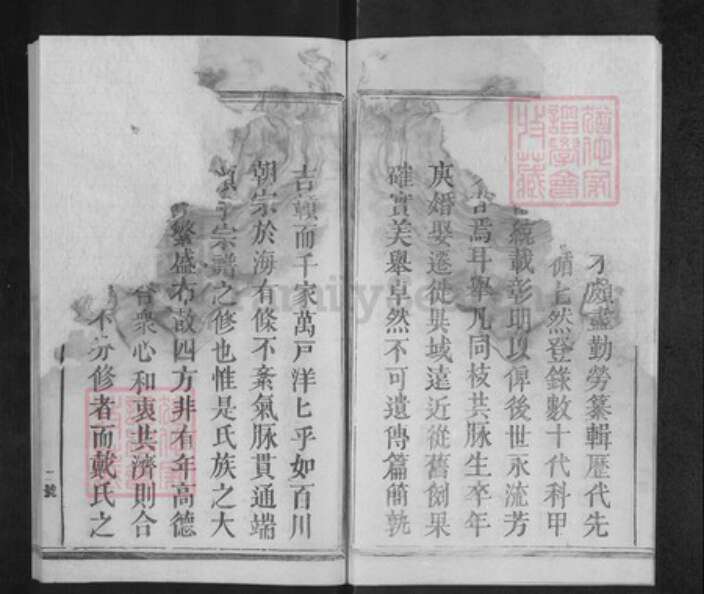 才頗藎勤勞纂輯歷代先
備匕然登錄數十代科甲
統載彰明以俾後世永流芳
焉耳舉凡同枝共脉生卒年
庚婚娶遷徙具域遠近從舊例果
確實美舉卓然不可遺傳篇簡孰
吉顛而千家萬戸洋匕乎如百川
朝宗於海有條不紊氣脉貫通端
宗譜之修也惟是氏族之大
繁盛布散四方非有年高德
衆心和衷共濟則合
不分修者而戴氏之
號